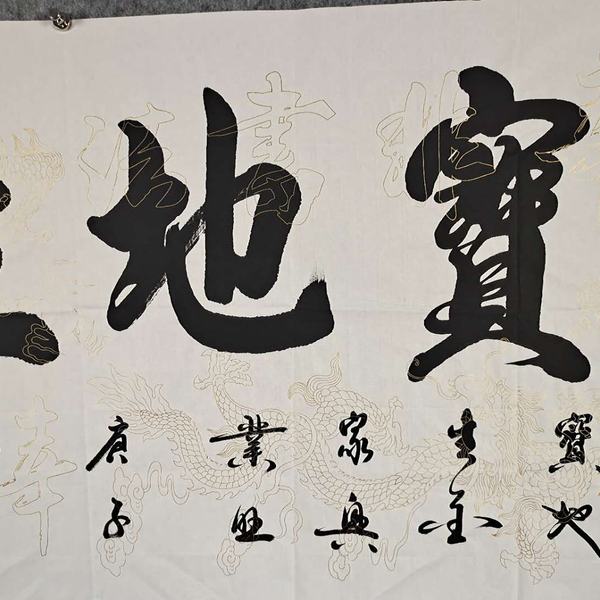 寶地
寶地
生金
家興
業旺
庚子